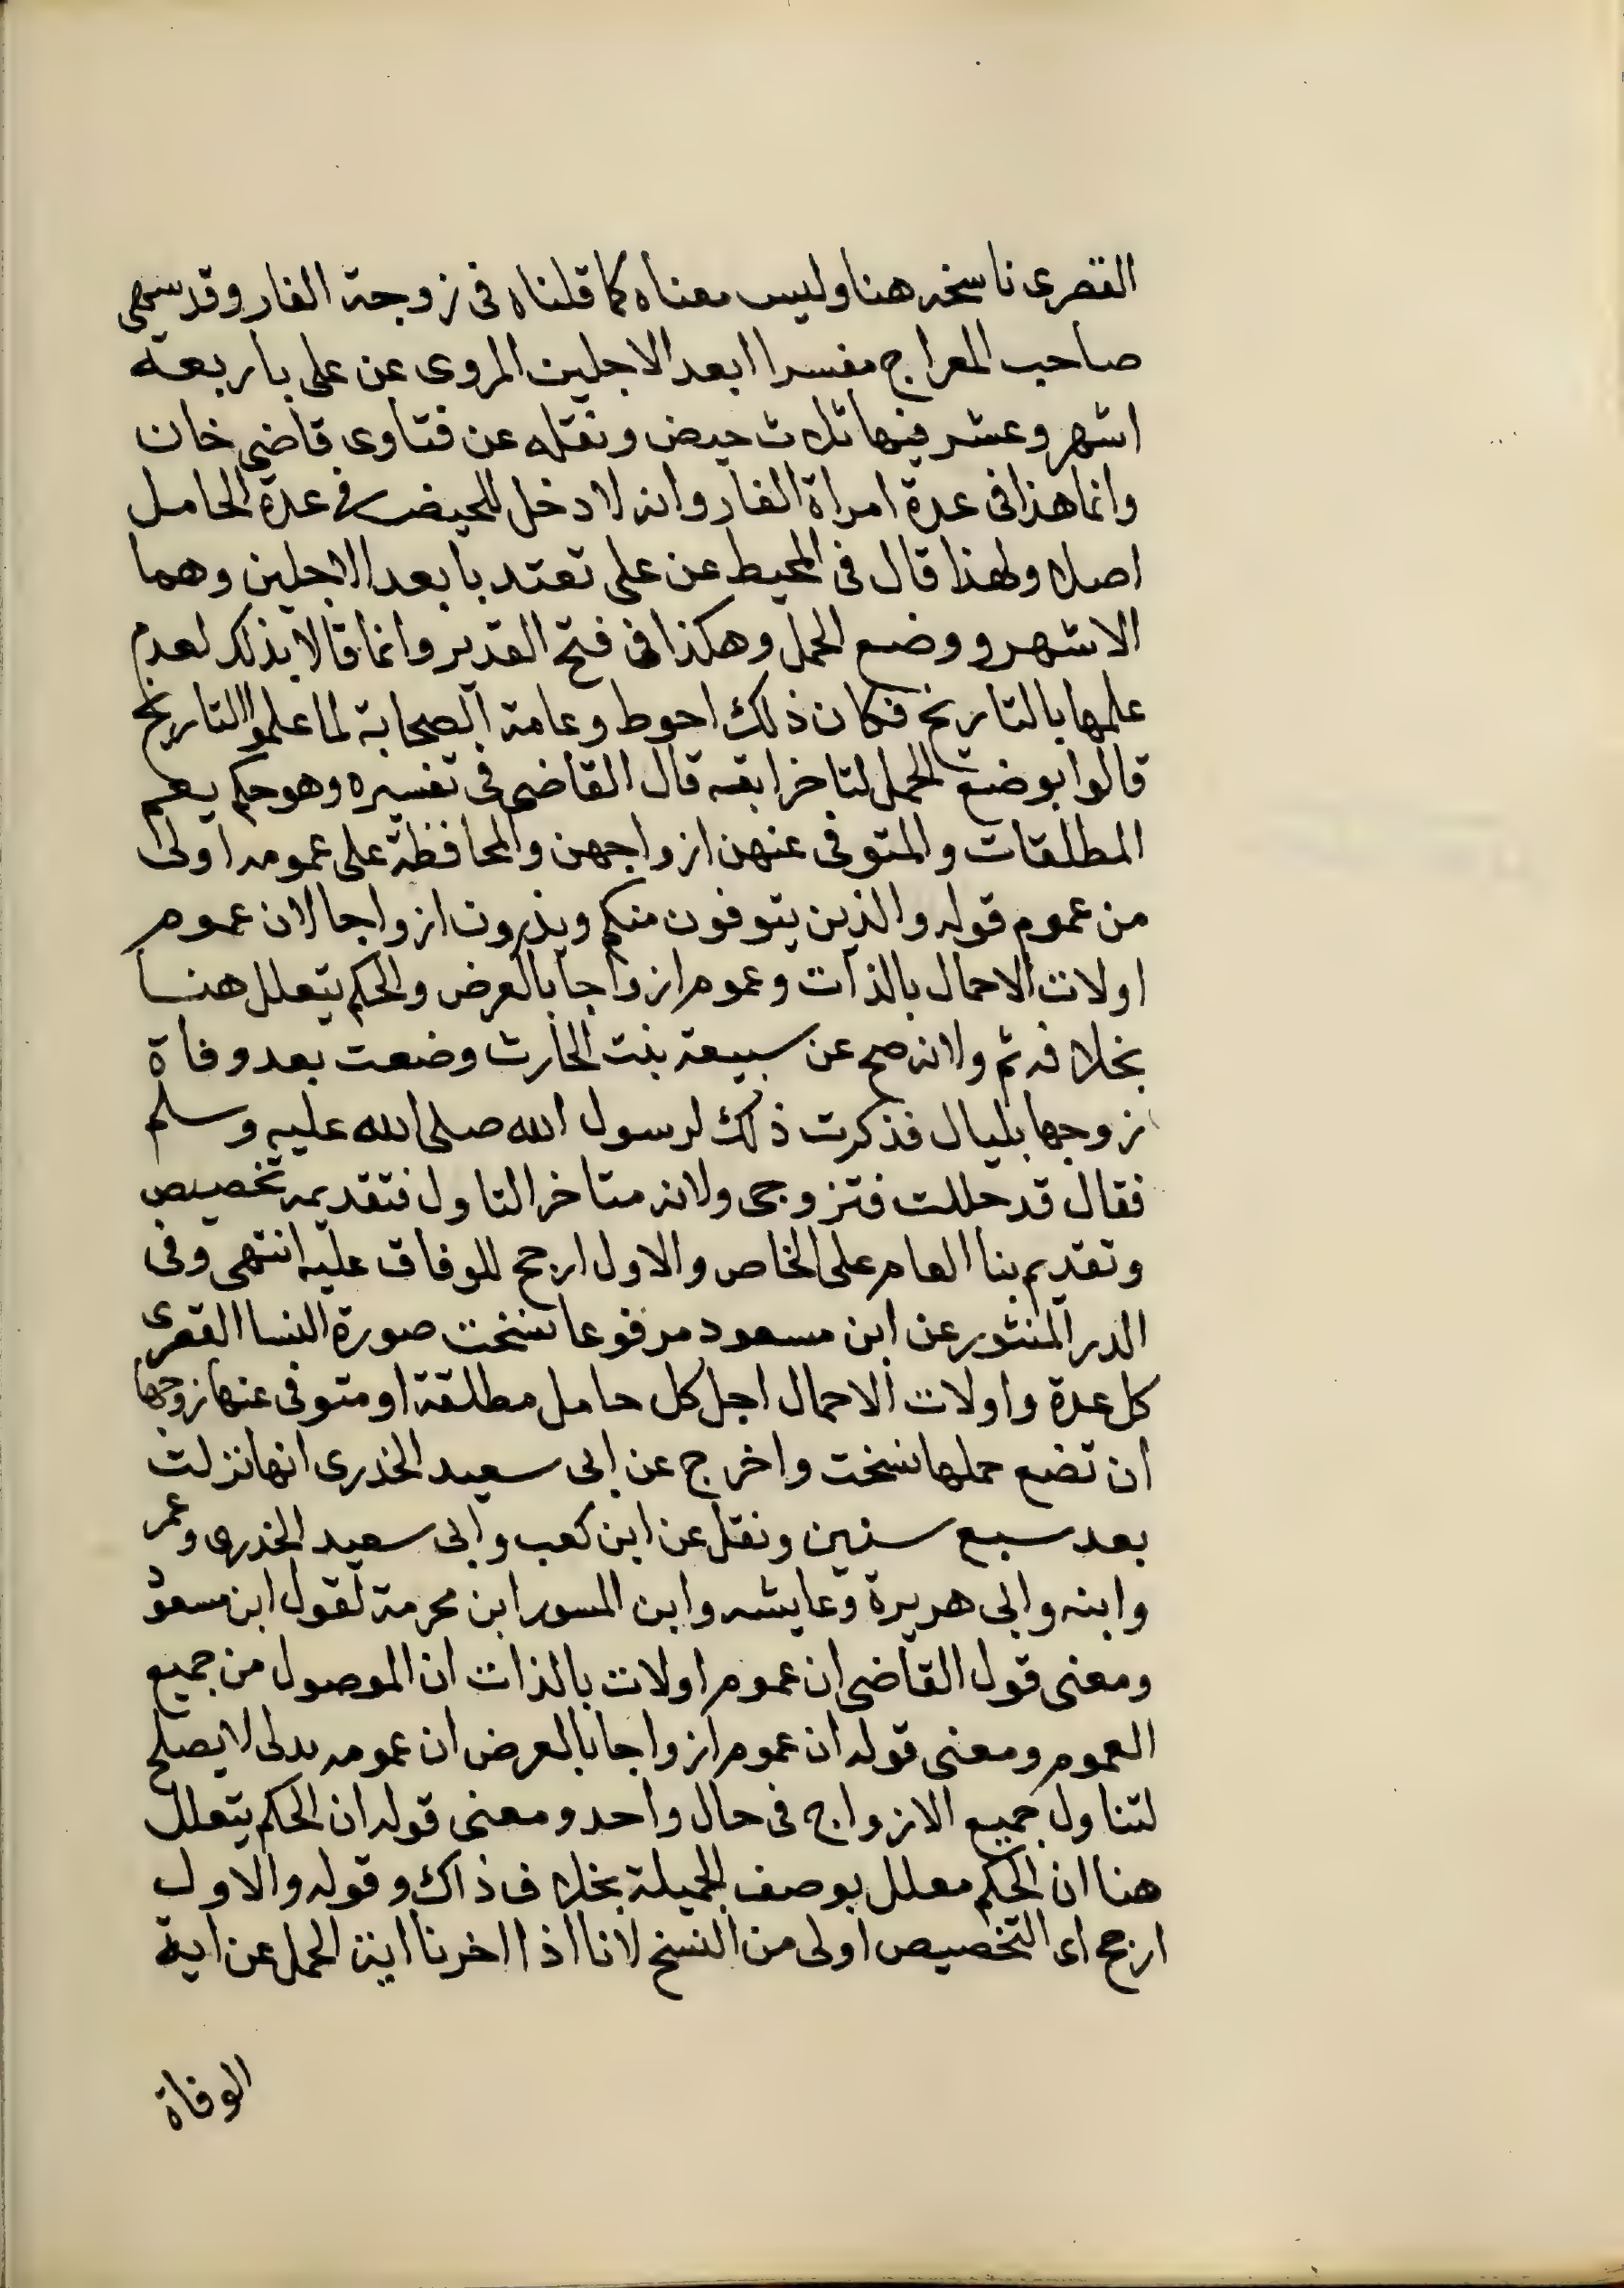 القصرى ناسخه هنا وليس معناه كما قلناه فى زوجة الفار وقد سهى
صاحب المعراج مفسرا ابعد الاجلين المروى عن على باربعة
اشهر وعشر فيها ثلاث حيض ونقله عن فتاوى قاضى خان
وانما هذا فى عدة امراة الفار وانه لا دخل للحيض فى عدة الحامل
اصلا ولهذا قال فى المحيط عن على تعتد بابعد الاجلين وهما
الاشهر ووضع الحمل وهكذا فى فتح القدير وانما قالا بذلك لعدم
علمها بالتاريخ فكان ذلك احوط وعامة الصحابة لما علموا التاريخ
قالوا بوضع الحمل لتاخر ابقه قال القاضى فى تفسيره وهو حكم يعم
المطلقات والمتوفى عنهن ازواجهن والمحافظة على عمومه اولى
من عموم قوله والذين يتوفون منكم ويذرون ازواجا لان عموم
اولات الاحمال بالذات وعموم ازواجا بالعرض والحكم يتعلل هنا
بخلافه ثم ولانه صح عن سبيعة بنت الحارث وضعت بعد وفاة
زوجها بليال فذكرت ذلك لرسول الله صلى الله عليه وسلم
فقال قد حللت فتزوجى ولانه متاخر التاول فتقديمه تخصيص
وتقديم بنا العام على الخاص والاول ارجح للوفاق عليه انتهى وفى
الدر المنثور عن ابن مسعود مرفوعا نسخت صورة النسا القصرى
كل عدة واولات الاحمال اجل كل حامل مطلقة او متوفى عنها زوجها
ان تضع حملها نسخت واخرج عن ابى سعيد الخدرى انها نزلت
بعد سبع سنين ونقل عن ابن كعب وابى سعيد الخدرى وعمر
وابنه وابى هريرة وعايشه وابن المسور ابن محرمة لقول ابن مسعود
ومعنى قول القاضى ان عموم اولات بالذات ان الموصول من جميع
العموم ومعنى قوله ان عموم ازواجا بالعرض ان عمومه بدلى لا يصلح
لتناول جميع الازواج فى حال واحد ومعنى قوله ان الحكم يتعلل
هنا ان الحكم معلل بوصف الجميلة بخلاف ذاك وقوله والاول
ارجح اى التخصيص اولى من النسخ لانا اذا اخرنا اية الحمل عن اية
الوفاة